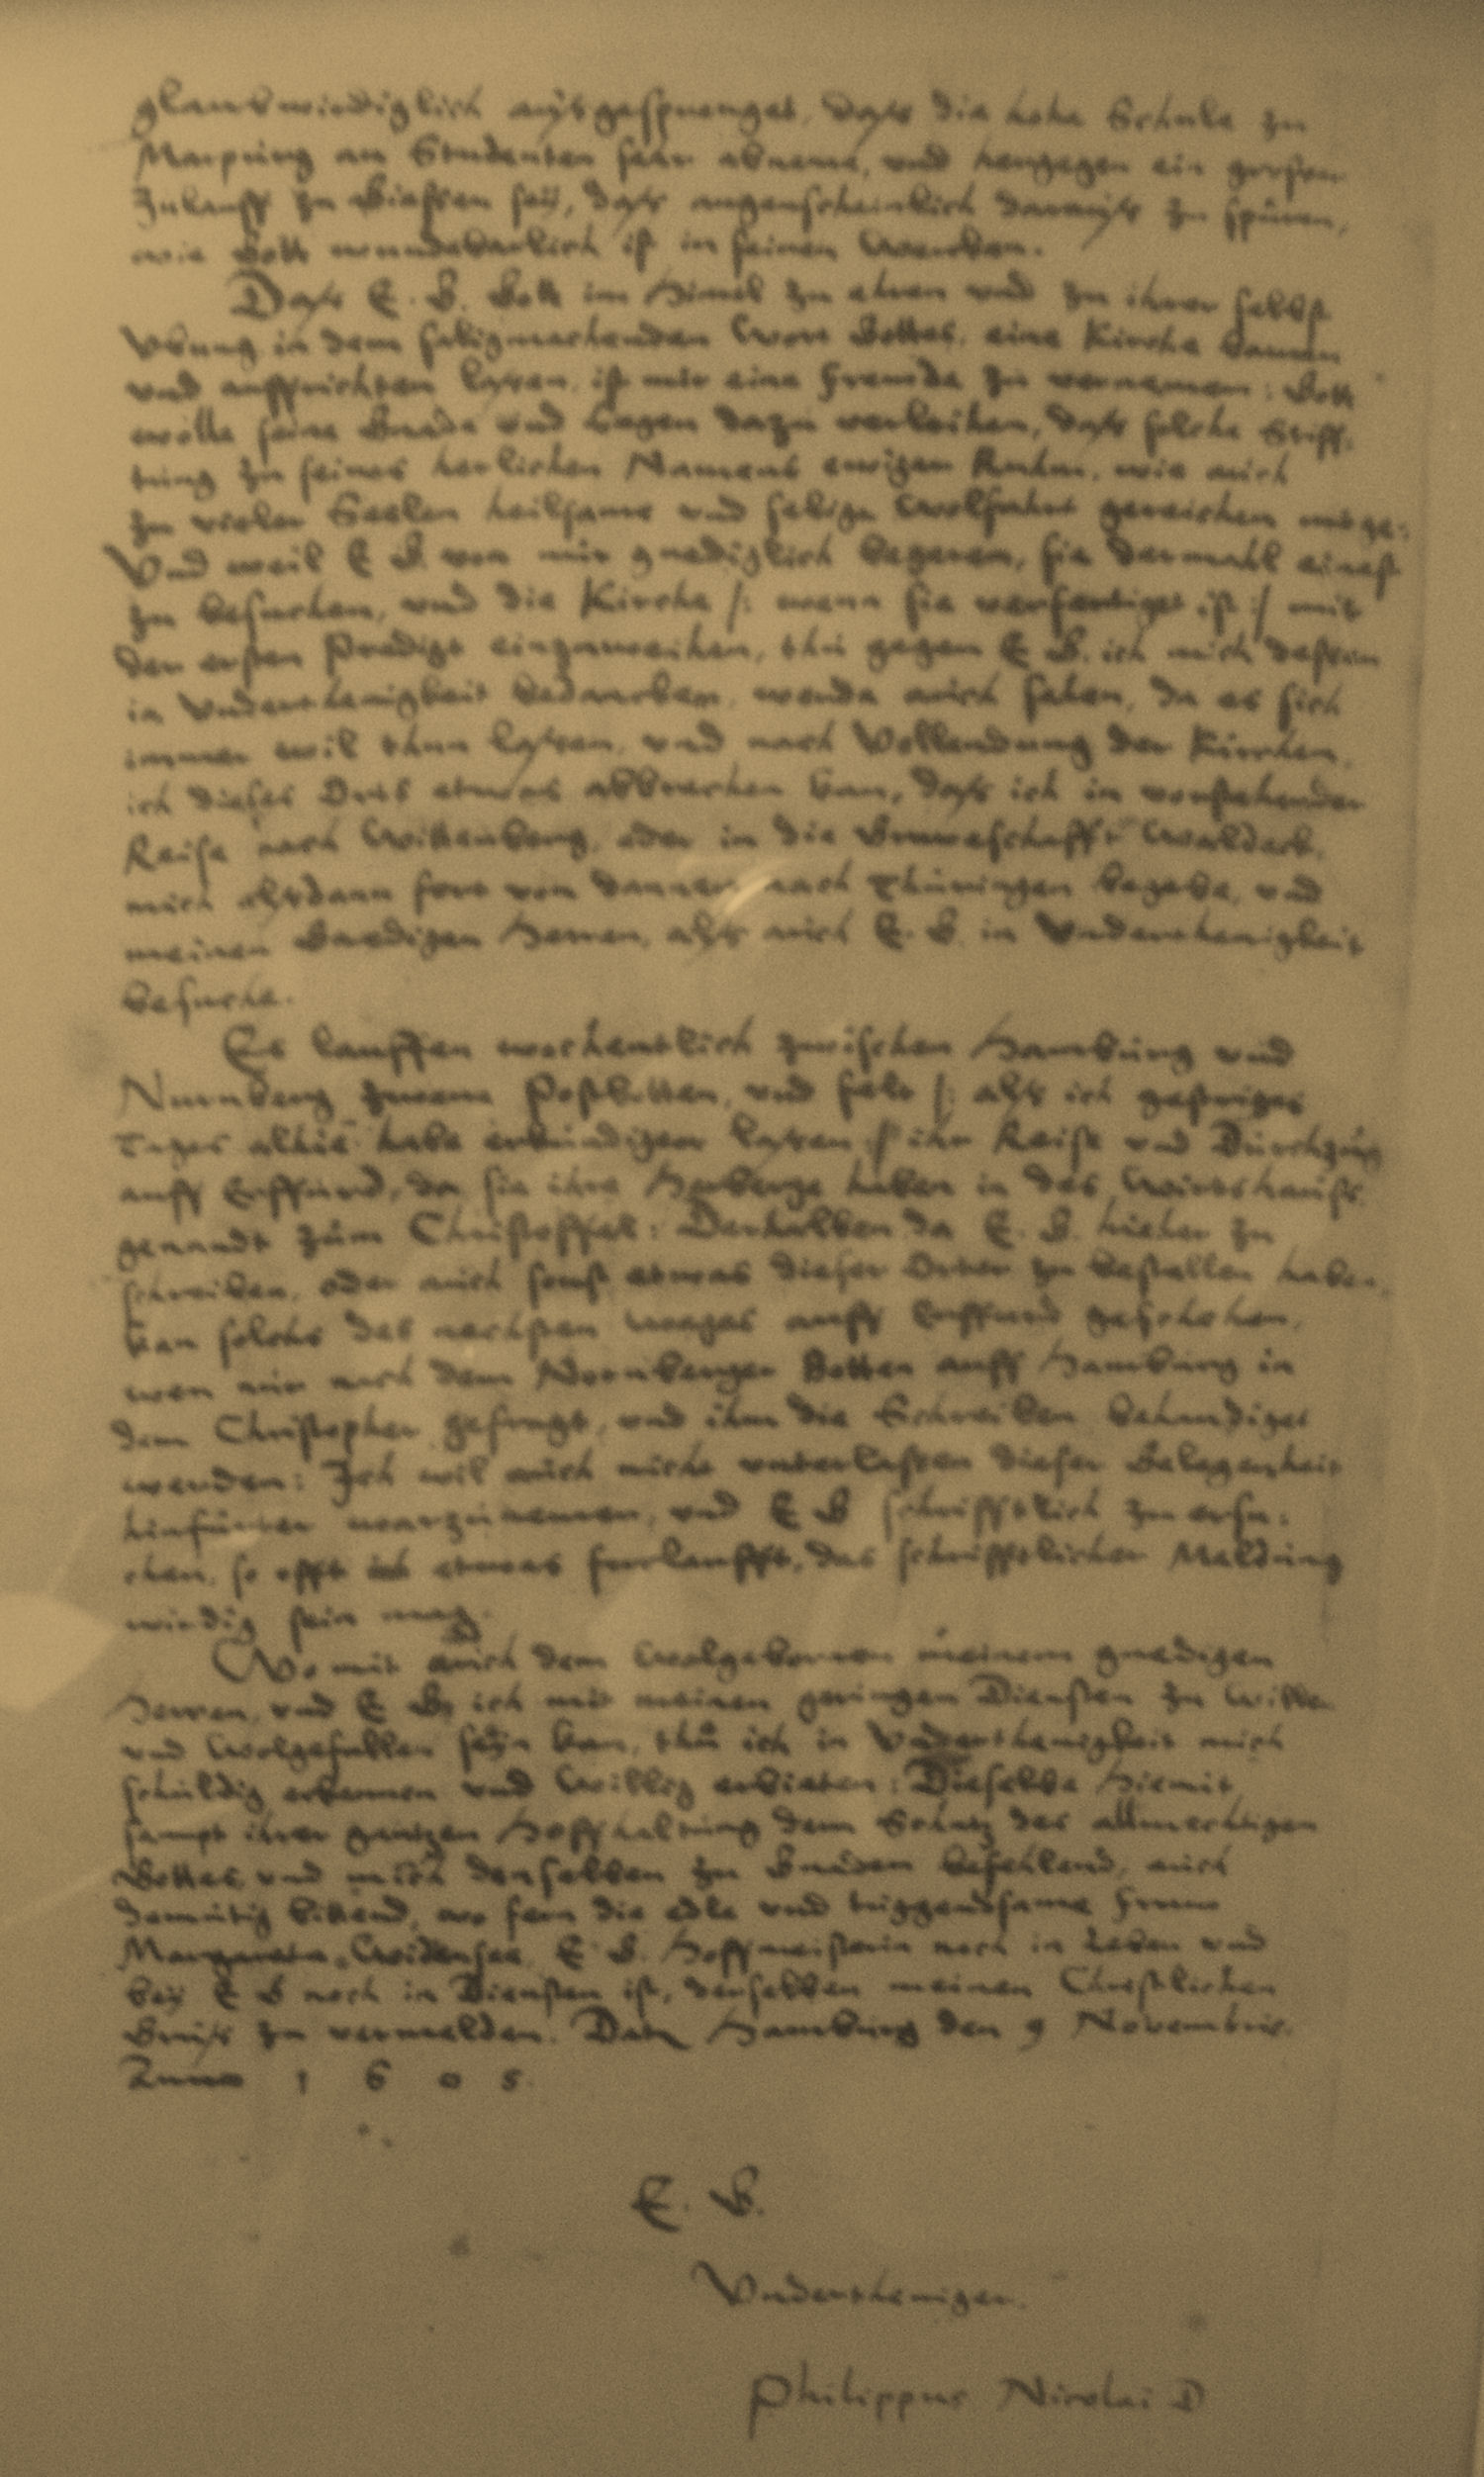 glaubwirdiglich außgesprenget, daß die hohe Schule zu
Marpurg an Studenten sehr abneme, und hergegen ein großer
Zulauff zu Giessen seÿ, daß augenscheinlich darauß zu spüren,
wie Gott wunderbarlich ist in seinen Wercken.
Daß E. G. Gott im Himel zu ehren und zu ihrer selbst
Vbung in dem seligmachenden Wort Gottes, eine Kirche bauen
und auffrichten lassen, ist mir eine Freude zu vernemen: Gott
wölle seine Gnade und Segen dazu verleihen, daß solche Stiff-
tung zu seines herlichen Namens ewigem Ruhm, wie auch
zu vieler Seelen heilsame und selige Wolfahrt gereichen möge:
Vnd weil E G. von mir gnediglich begeren, sie dermahl einest
zu besuchen, und die Kirche /: wenn sie verfertiget ist :/ mit
der ersten Predigt einzuweihen, thu gegen E G. ich mich dessen
in Vnderthenigkeit bedancken, werde auch sehen, da es sich
immer wil thun lassen, und nach Vollendung der Kirchen,
ich dieses Orts etwas abbrechen kan, daß ich in vorstehender
Reise nach Wittenberg, oder in die Graveschafft Waldeck,
mich alßdann fort von dannen nach Thüringen begebe, und
meinen Gnedigen Herren, alß auch E. G. in Vnderthenigkeit
besuche.
Es lauffen wochentlich zwischen Hamburg und
Nurnberg zwene Postbotten, und felt /: alß ich gestriges
Tages alhie habe erkundigen lassen :/ ihr Reise und Durchzug
auff Erffurd, da sie ihre Herberge haben in des Wirtshauß,
genandt zum Christoffel: Derhalben da E. G. hieher zu
schreiben, oder auch sonst etwas dieser Orter zu bestellen haben,
kan solchs des nechsten weges auff Erffurd geschehen,
wen nur nach dem Nornberger Botten auff Hamburg in
dem Christopher gefragt, und ihm die Schreiben behendiget
werden: Ich wil auch nicht unterlassen dieser Gelegenheit
hinfürter warzunemen, und E G schrifftlich zu ersu-
chen, so offt etwas furlaufft, das schrifftlicher Meldung
wirdig sein mag.
Wo mit auch dem Wolgebornen meinem gnedigen
Herren, und E G. ich mit meinen geringen Diensten zu Willen
und Wolgefallen seÿn kan, thu ich in Vnderthenigkeit mich
schuldig erkennen und Willig erbieten: Dieselbe hiemit
sampt ihrer gantzen Hoffhaltung dem Schutz des allmechtigen
Gottes, und mich derselben zu Gnaden befehlend, auch
demütig bittend, wo fern die edle und tuggendsame Fraw
Margareta Widensee, E. G. Hoffmeisterin noch in Leben und
beÿ E G noch in Diensten ist, derselben meinen Christlichen
Gruß zu vermelden. Dat. Hamburg den 9 Novembris.
Anno 1 6 0 5.
E. G.
Vndertheniger.
Philippus Nicolai D